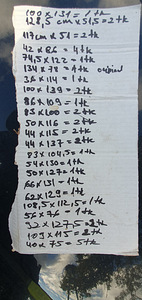 100 x 131 = 1tk
128,5 cm x 51,5 = 2tk
117cm x 51 = 2tk
42 x 86 = 4tk
74,5 x 122 = 1tk
134 x 78 = 1tk
36 x 114 = 1tk
100 x 139 = 2tk
86 x 109 = 1tk
85 x 100 = 2tk
50 x 116 = 2tk
44 x 115 = 2tk
44 x 137 = 2tk
93 x 104,5 = 1tk
54 x 130 = 1tk
50 x 127 = 1tk
66 x 131 = 1tk
62 x 129 = 1tk
108,5 x 112,5 = 1tk
56 x 76 = 1tk
32 x 127,5 = 2tk
109 x 115 = 2tk
40 x 75 = 5tk